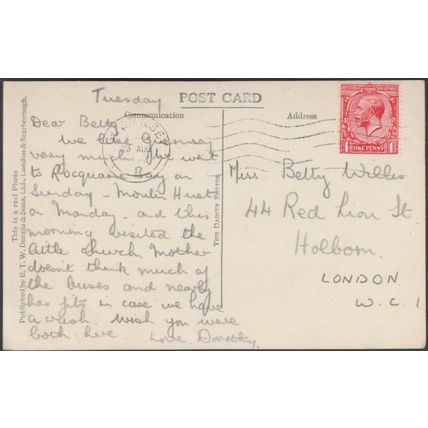 Tuesday
POST CARD
Communication
Address
Dear Betty
We like Guernsey
very much. We went
to Rocquaine Bay on
Sunday - Moulin Huet
on Monday - and this
morning visited the
little church. Mother
doesn't think much of
the buses and nearly
has fits in case we have
a crash. Wish you were
both here.
Love, Dorothy.
Miss Betty Willis
44 Red Lion St
Holborn
LONDON
W.C.1
This is a real Photo
Published by E. T. W. Dennis & Sons, Ltd., London & Scarborough.
THE DAINTY SERIES
GUERNSEY
AUG
POSTAGE REVENUE
1 ONE PENNY 1